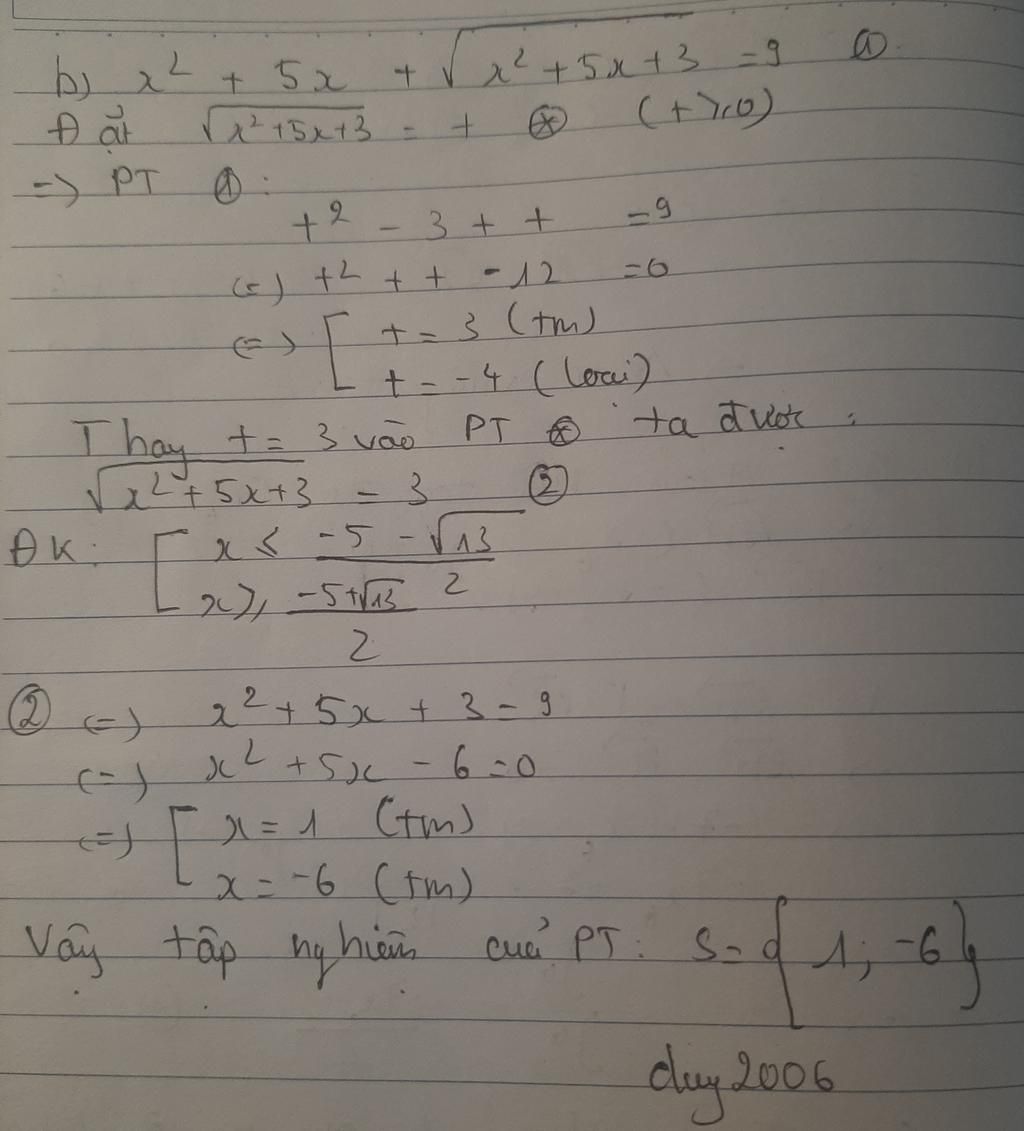 b) x² + 5x + √(x² + 5x + 3) = 9 ①.
Đặt √(x² + 5x + 3) = t ⊛ (t ≥ 0)
=> PT ①:
t² - 3 + t = 9
(=) t² + t - 12 = 0
(=) [ t = 3 (tm)
t = -4 (loại)
Thay t = 3 vào PT ⊛ ta được:
√(x² + 5x + 3) = 3 ②
ĐK: [ x ≤ (-5 - √13)/2
x ≥ (-5 + √13)/2
② (=) x² + 5x + 3 = 9
(=) x² + 5x - 6 = 0
(=) [ x = 1 (tm)
x = -6 (tm)
Vậy tập nghiệm của PT: S = { 1; -6 }
duy2006